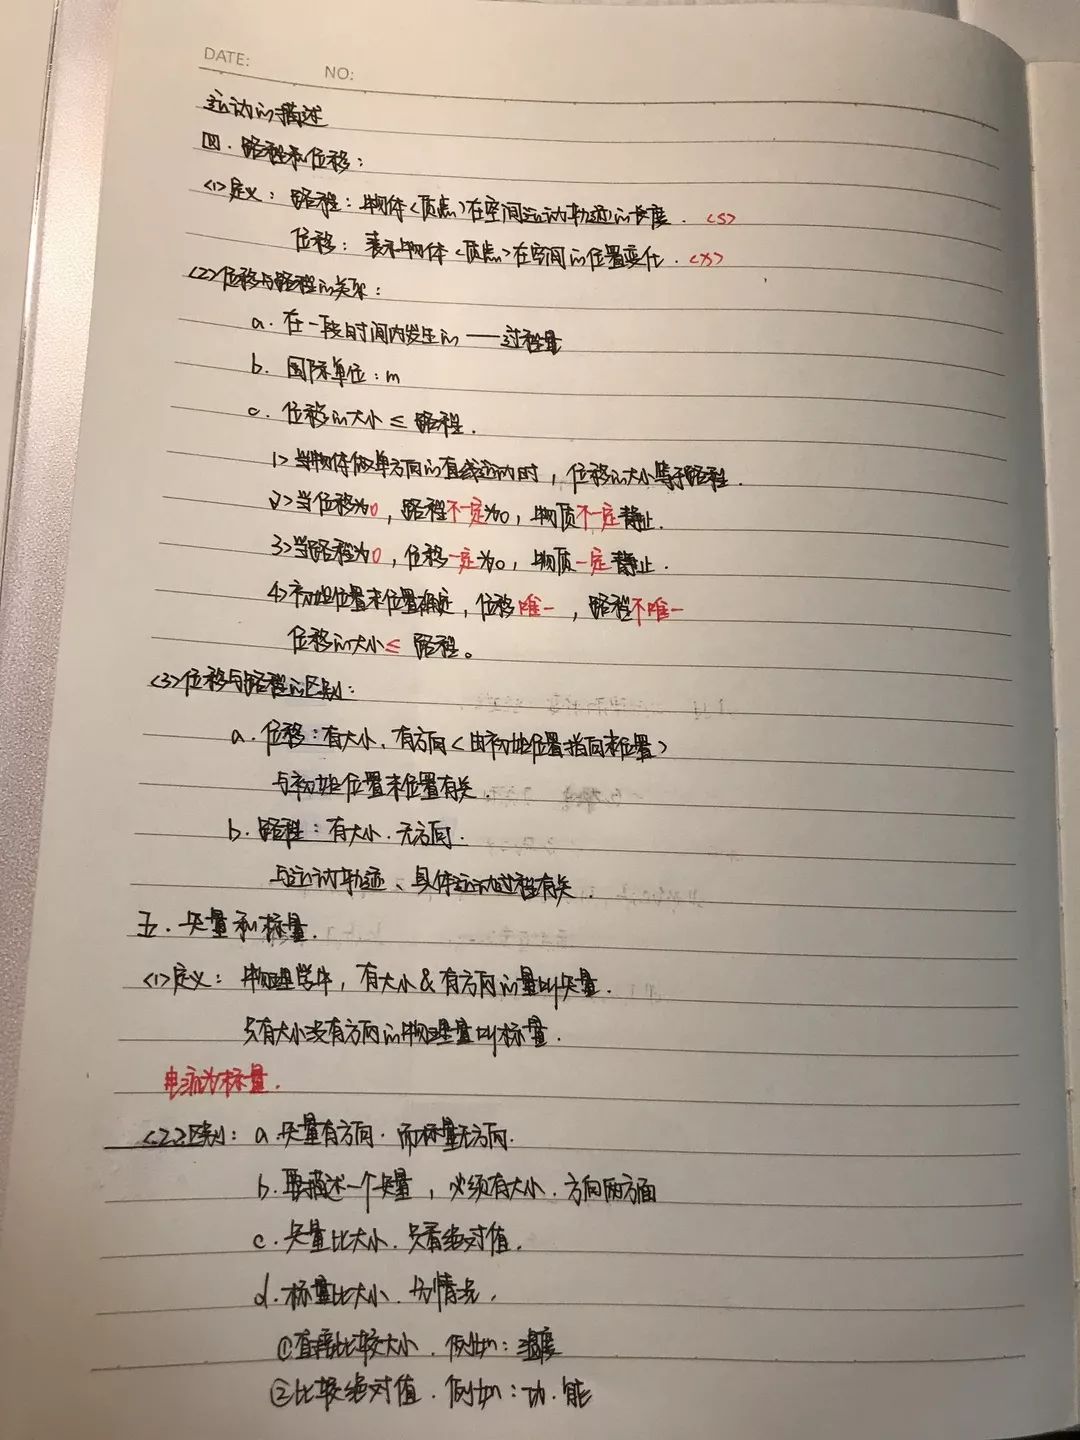 DATE: NO:
运动的描述
四. 路程和位移:
<1>定义: 路程: 物体<质点>在空间运动轨迹的长度. <s>
位移: 表示物体<质点>在空间的位置变化. <x>
<2>位移与路程的关系:
a. 在一段时间内发生的——过程量
b. 国际单位: m
c. 位移的大小 ≤ 路程.
1>当物体做单方向的直线运动时, 位移的大小等于路程.
2>当位移为0, 路程不一定为0, 物质不一定静止.
3>当路程为0, 位移一定为0, 物质一定静止.
4>初始位置末位置确定, 位移唯一, 路程不唯一
位移的大小≤ 路程。
<3>位移与路程的区别:
a. 位移: 有大小. 有方向<由初始位置指向末位置>
与初始位置末位置有关.
b. 路程: 有大小. 无方向.
与运动轨迹、具体运动过程有关.
五. 矢量和标量.
<1>定义: 物理学中, 有大小&有方向的量叫矢量.
只有大小没有方向的物理量叫标量.
电流为标量.
<2>区别: a. 矢量有方向. 而标量无方向.
b. 要描述一个矢量, 必须有大小. 方向两方面
c. 矢量比大小. 只看绝对值.
d. 标量比大小. 分情况.
①直接比较大小. 例如: 温度
②比较绝对值. 例如: 功. 能